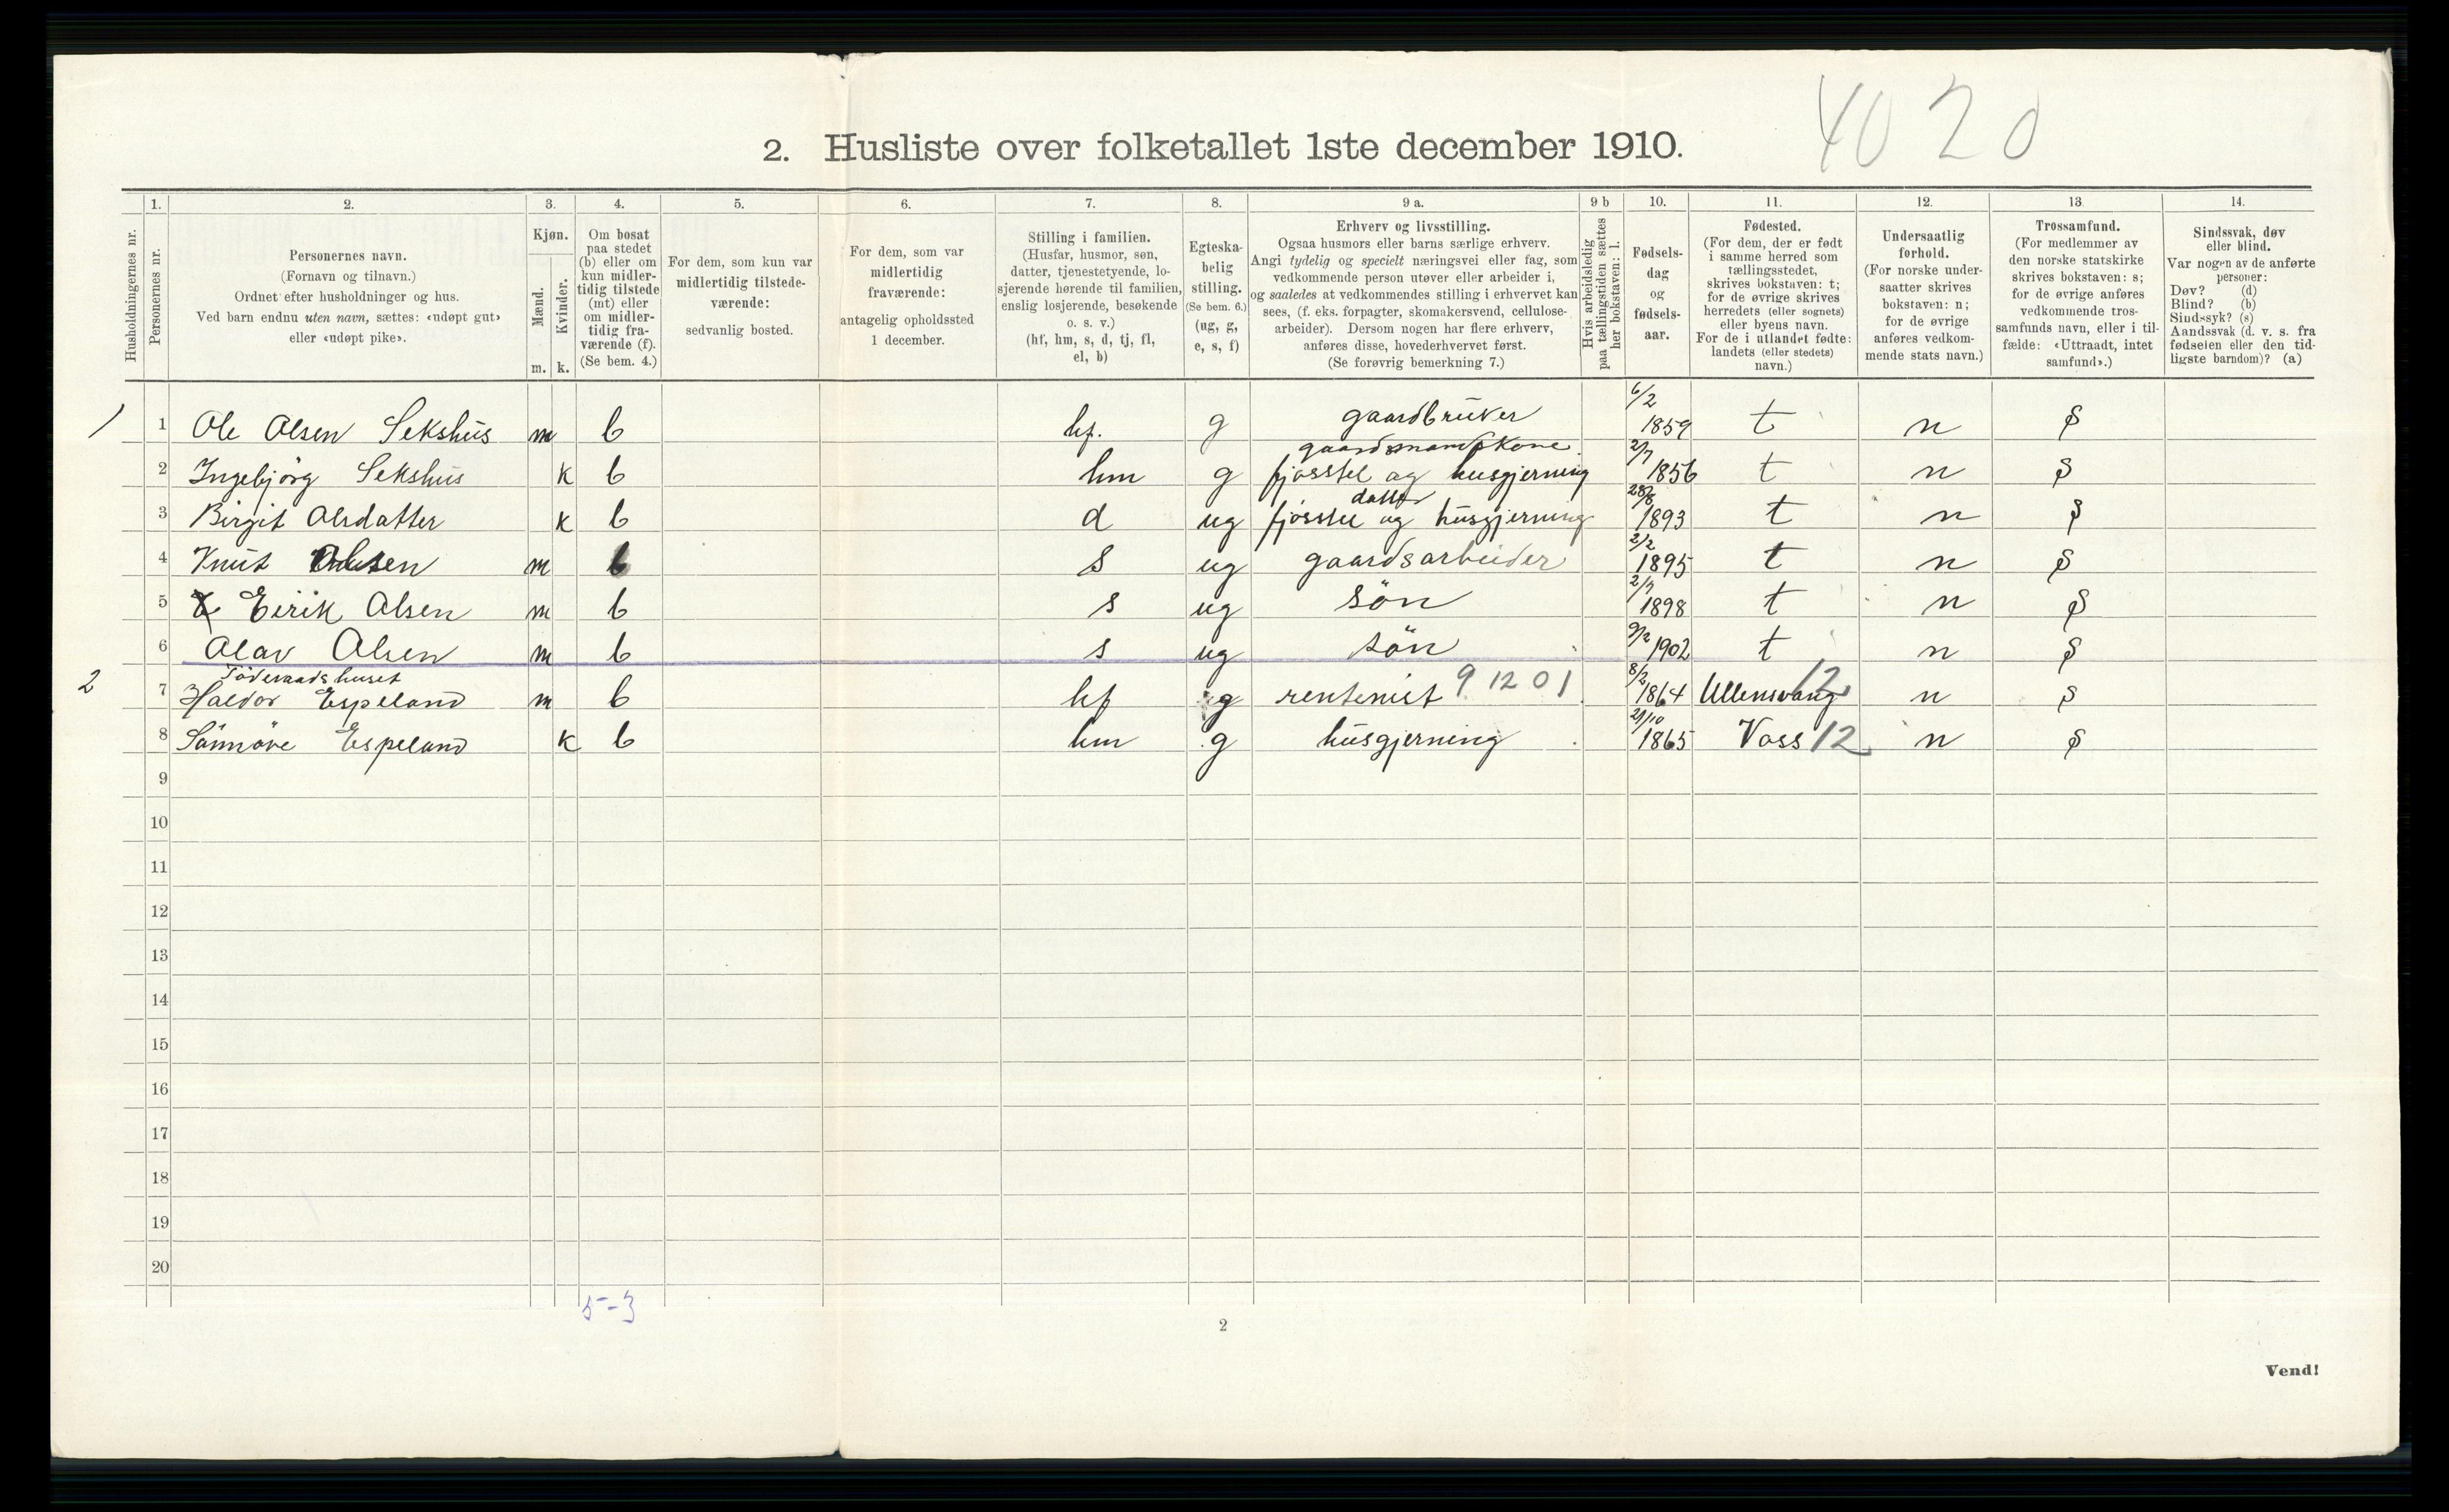 4020
2. Husliste over folketallet 1ste december 1910.
Husholdningernes nr.
1. 2. 3. 4. 5. 6. 7. 8. 9 a. 9 b 10. 11. 12. 13 14.
Personernes nr.
Personernes navn.
(Fornavn og tilnavn.)
Ordnet efter husholdninger og hus.
Ved barn endnu uten navn, sættes: «udøpt gut»
eller «udøpt pike».
Kjøn.
Mænd.
Kvinder.
m. k.
Om bosat
paa stedet
(b) eller om
kun midler-
tidig tilstede
(mt) eller
om midler-
tidig fra-
værende (f).
(Se bem. 4.)
For dem, som kun var
midlertidig tilstede-
værende:
sedvanlig bosted.
For dem, som var
midlertidig
fraværende:
antagelig opholdssted
1 december.
Stilling i familien.
(Husfar, husmor, søn,
datter, tjenestetyende, lo-
sjerende hørende til familien,
enslig losjerende, besøkende
o. s. v.)
(hf, hm, s, d, tj, fl,
el, b)
Egteska-
belig
stilling.
(Se bem. 6.)
(ug, g,
e, s, f)
Erhverv og livsstilling.
Ogsaa husmors eller barns særlige erhverv.
Angi tydelig og specielt næringsvei eller fag, som
vedkommende person utøver eller arbeider i,
og saaledes at vedkommendes stilling i erhvervet kan
sees, (f. eks. forpagter, skomakersvend, cellulose-
arbeider). Dersom nogen har flere erhverv,
anføres disse, hovederhvervet først.
(Se forøvrig bemerkning 7.)
Hvis arbeidsledig
paa tællingstiden sættes
her bokstaven: l.
Fødsels-
dag
og
fødsels-
aar.
Fødested.
(For dem, der er født
i samme herred som
tællingsstedet,
skrives bokstaven: t;
for de øvrige skrives
herredets (eller sognets)
eller byens navn.
For de i utlandet fødte:
landets (eller stedets)
navn.)
Undersaatlig
forhold.
(For norske under-
saatter skrives
bokstaven: n;
for de øvrige
anføres vedkom-
mende stats navn.)
Trossamfund.
(For medlemmer av
den norske statskirke
skrives bokstaven: s;
for de øvrige anføres
vedkommende tros-
samfunds navn, eller i til-
fælde: «Uttraadt, intet
samfund».)
Sindssvak, døv
eller blind.
Var nogen av de anførte
personer:
Døv? (d)
Blind? (b)
Sindssyk? (s)
Aandssvak (d. v. s. fra
fødselen eller den tid-
ligste barndom)? (a)
1 1 Ole Olsen Sekshus m b hf. g gaardbruker 6/2 1859 t n s
gaardsmandskone
2 Ingebjörg Sekshus k b hm g fjosstel og husgjerning 2/7 1856 t n s
datter
3 Birgit Olsdatter k b d ug fjosstel og husgjerning 28/8 1893 t n s
4 Knut Olsen m b s ug gaardsarbeider 2/2 1895 t n s
5 Eirik Olsen m b s ug sön 2/7 1898 t n s
6 Olav Olsen m b s ug sön 9/2 1902 t n s
Föderaadshuset
2 7 Haldor Espeland m b hf g rentenist 9 12 01 8/2 1864 Ullensvang 12 n s
8 Sönnöve Espeland k b hm g husgjerning 21/10 1865 Voss 12 n s
9
10
11
12
13
14
15
16
17
18
19
20
5-3
2
Vend!